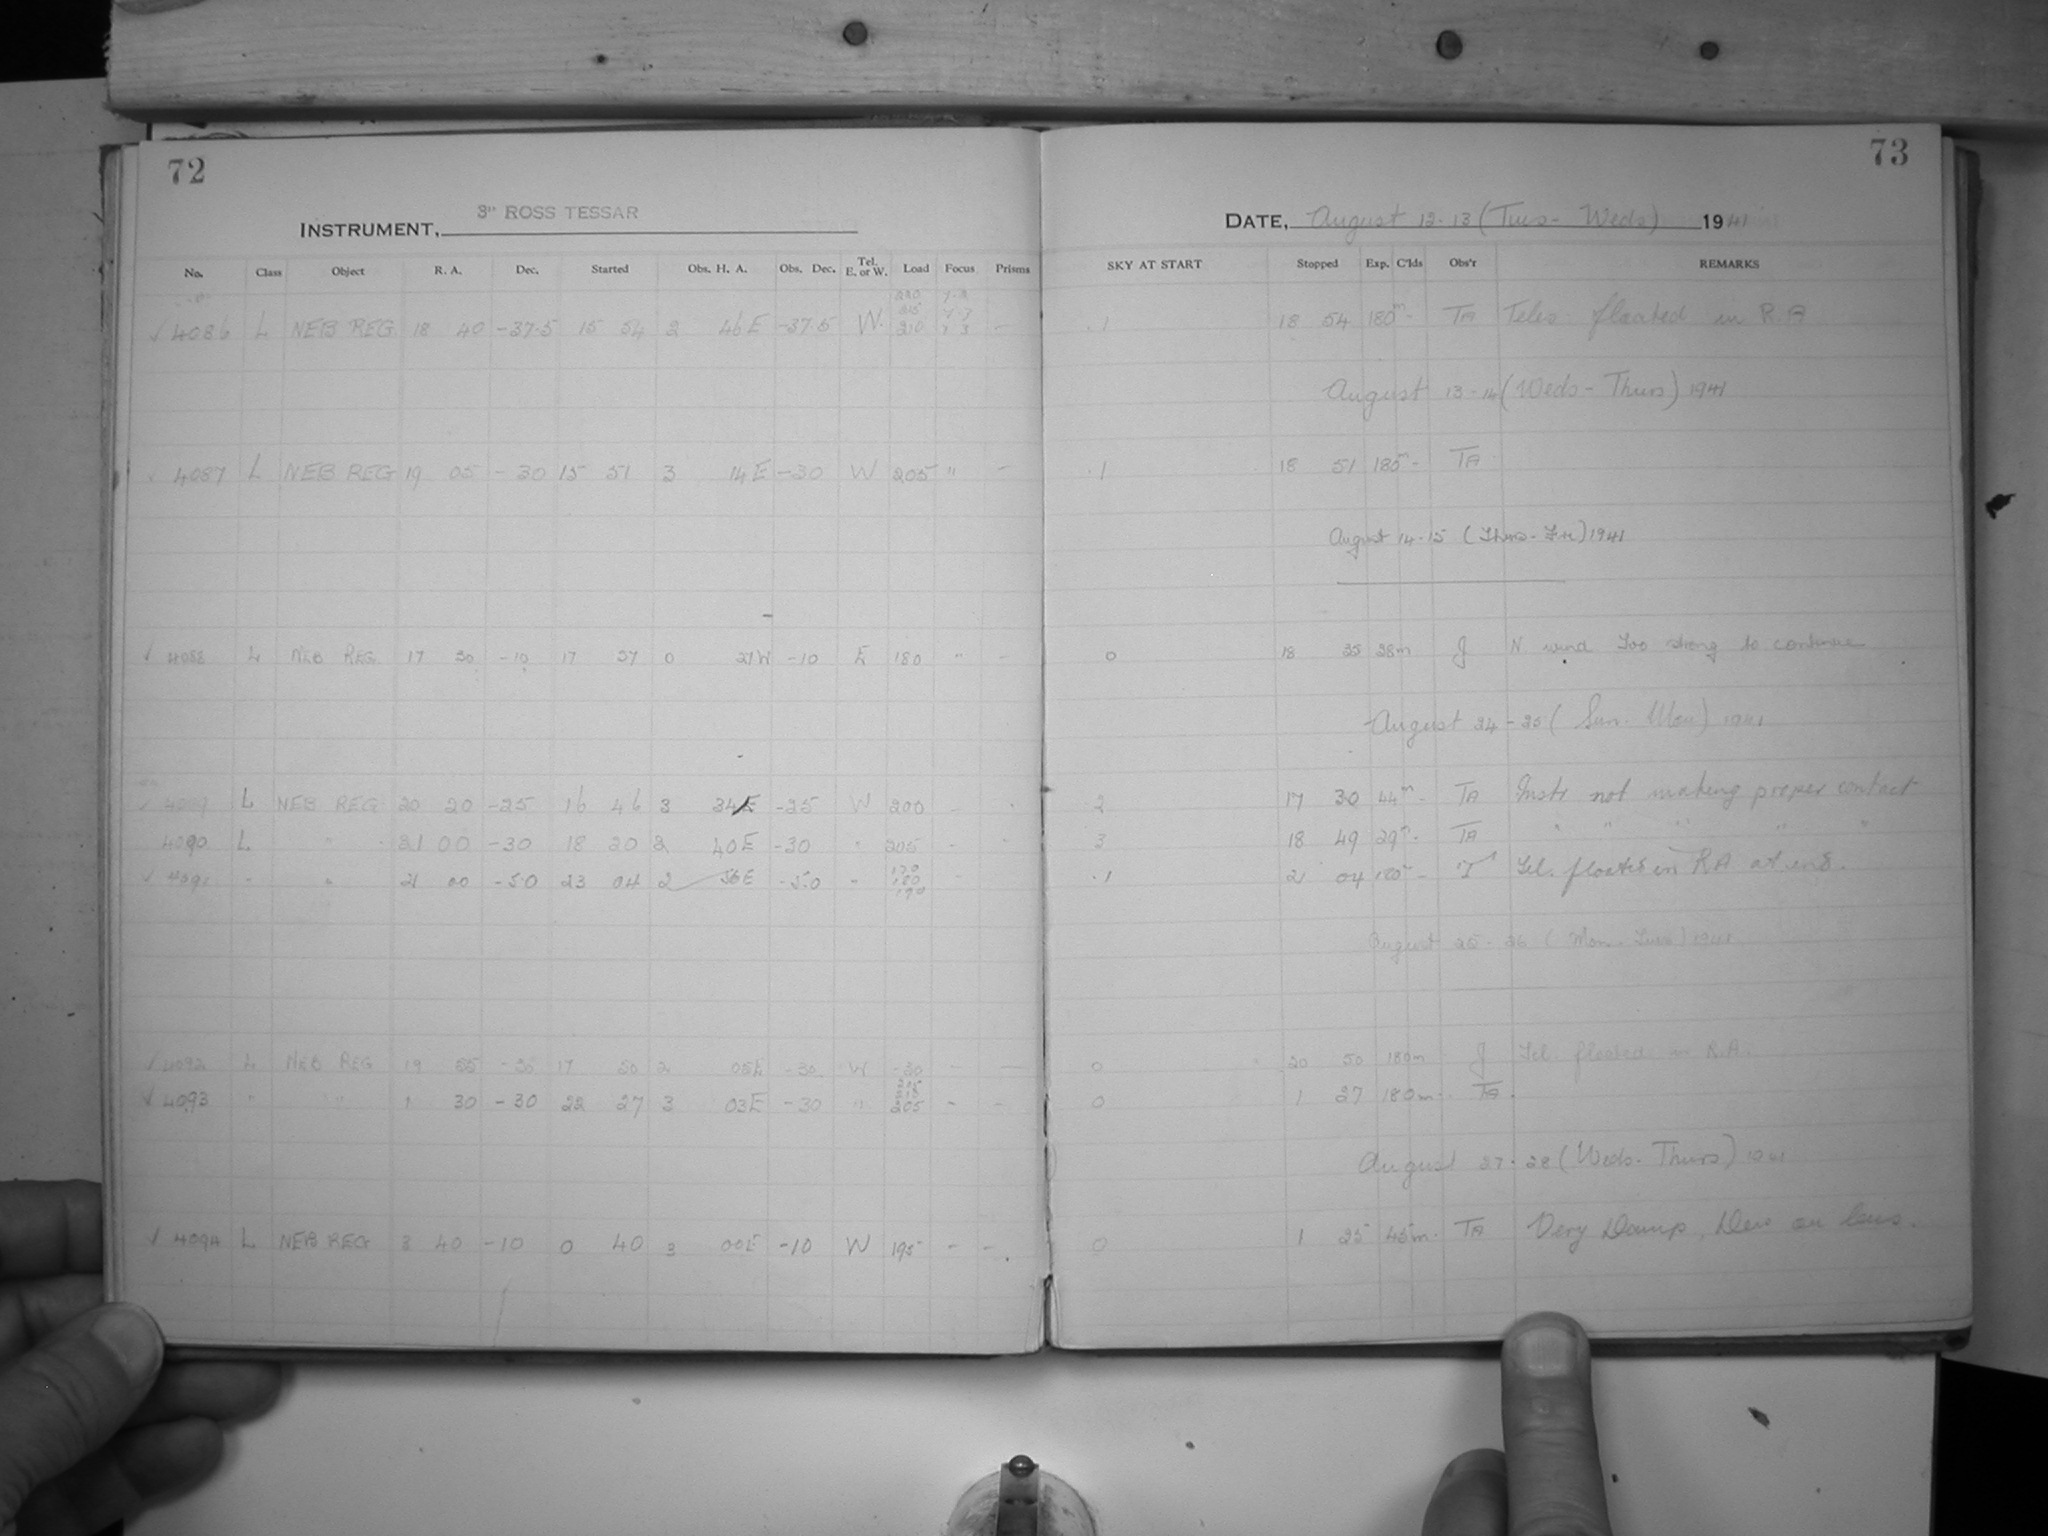 72
73
INSTRUMENT, 3" ROSS TESSAR
DATE, August 12-13 (Tues- Weds) 1941
No. Class Object R. A. Dec. Started Obs. H. A. Obs. Dec. Tel. E. or W. Load Focus Prisms SKY AT START Stopped Exp. C'lds Obs'r REMARKS
220
215
✓ 4086 L NEB REG 18 40 -37.5 15 54 2 46 E -37.5 W. 210 - .1 18 54 180m - TA Teles floated in R.A
August 13-14 (Weds-Thurs) 1941
✓ 4087 L NEB REG 19 05 -30 15 51 3 14 E -30 W 205 " - .1 18 51 180m - TA
August 14-15 (Thurs-Fri) 1941
✓ 4088 L NEB REG 17 30 -10 17 57 0 27 W -10 E 180 " - 0 18 35 38m J N. wind too strong to continue
August 24-25 (Sun. Mon) 1941
✓ 4089 L NEB REG 20 20 -25 16 46 3 34 E -25 W 200 - - 2 17 30 44m - TA Instr not making proper contact
4090 L. " " 21 00 -30 18 20 2 40 E -30 " 205 - - 3 18 49 29m - TA " " " " "
170
180
✓ 4091 " " 21 00 -50 23 04 2 56 E -50 " 190 .1 21 04 180m - Tel. floated in RA at end.
August 25-26 (Mon-Tues) 1941
✓ 4092 L NEB REG 19 55 -30 17 50 2 05 E -30 W - - 0 20 50 180m J Tel. floated in R.A.
✓ 4093 " " 1 30 -30 22 27 3 03 E -30 " 205 - - 0 1 27 180m - TA.
August 27-28 (Weds-Thurs) 1941
✓ 4094 L NEB REG 3 40 -10 0 40 3 00 E -10 W 195 - - 0 1 25 45m. TA Very Damp, Dew on lens.